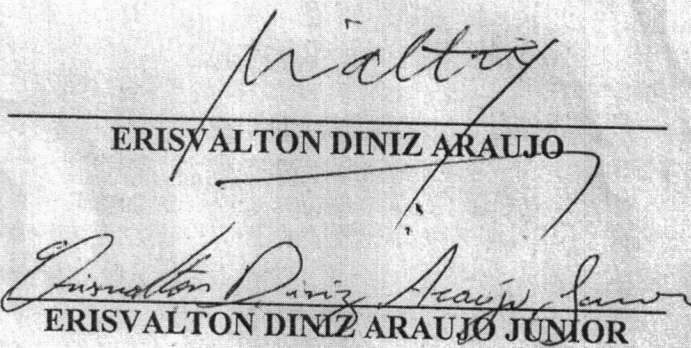 ERISVALTON DINIZ ARAUJO
Erisvalton Diniz Araújo Junior
ERISVALTON DINIZ ARAUJO JUNIOR